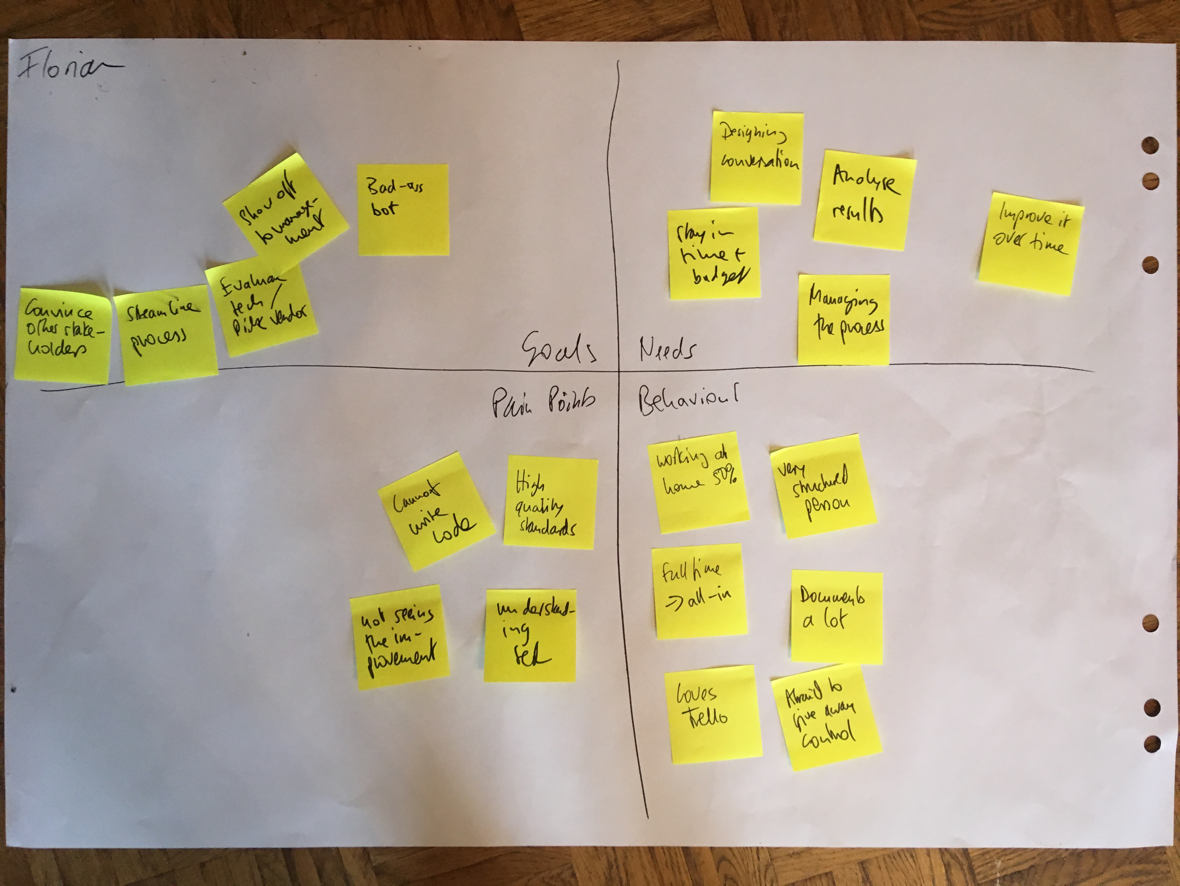 Florian
Show off
to manage-
ment
Bad-ass
bot
Convince
other stake-
holders
Streamline
process
Evaluate
tech /
Pick vendor
Goals
Designing
conversation
Analyse
results
stay in
time +
budget
Improve it
over time
Managing
the process
Needs
Pain Points
Cannot
write
code
High
quality
standards
not seeing
the im-
provement
understand-
ing
tech
Behaviour
working at
home 50%
very
structured
person
Full time
→ all-in
Documents
a lot
Loves
Trello
Afraid to
give away
control